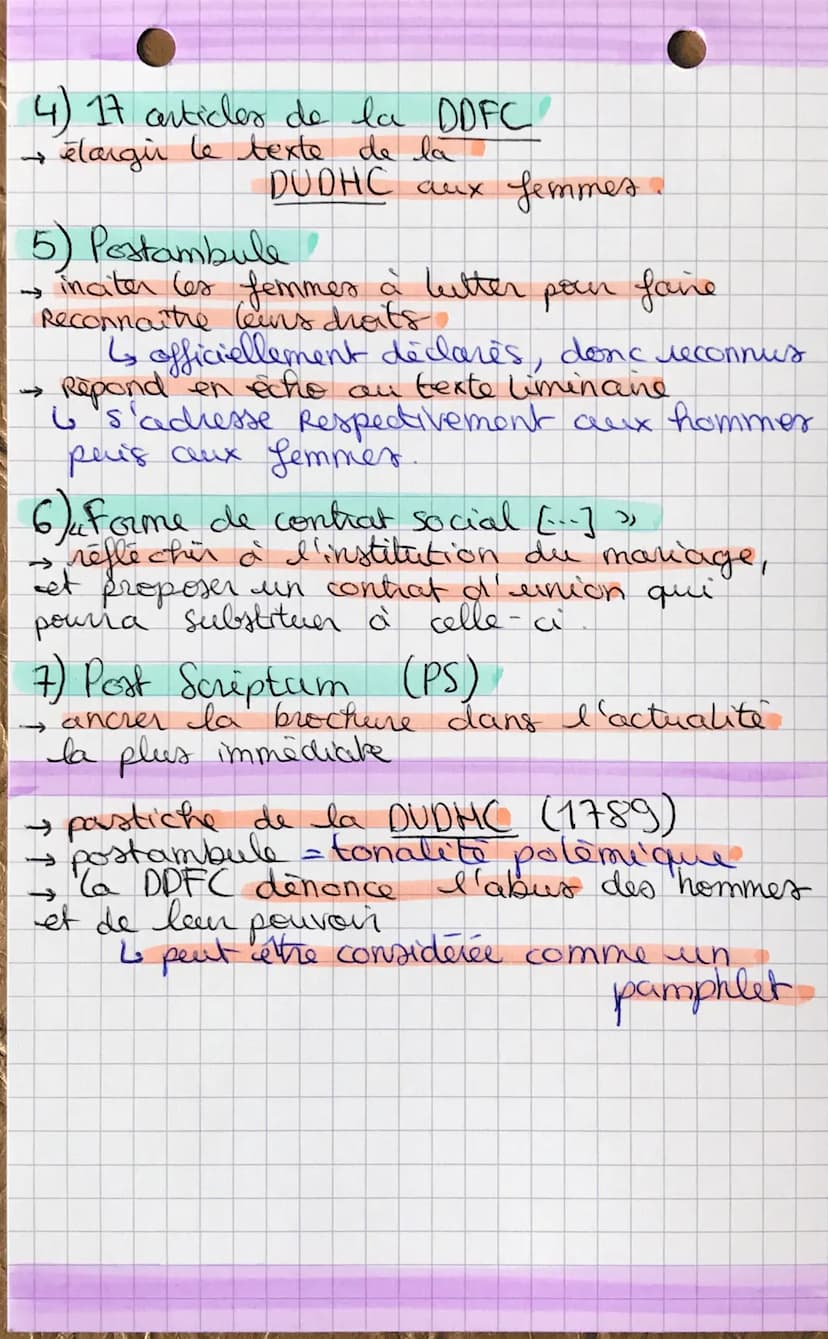 4) 17 articles de la DDFC
→ élargir le texte de la
DUDHC aux femmes.
5) Postambule
→ inciter les femmes à lutter pour faire
Reconnaître leurs droits
↳ officiellement déclarés, donc reconnus
→ Répond en écho au texte liminaire
↳ s'adresse Respectivement aux hommes
puis aux femmes.
6) « Forme de contrat social [...] »
→ réfléchir à l'institution du mariage,
et proposer un contrat d'union qui
pourra substituer à celle-ci.
7) Post Scriptum (PS)
→ ancrer la brochure dans l'actualité
la plus immédiate
→ pastiche de la DUDHC (1789)
→ postambule = tonalité polémique
→ la DDFC dénonce l'abus des hommes
et de leur pouvoir
↳ peut être considérée comme un
pamphlet